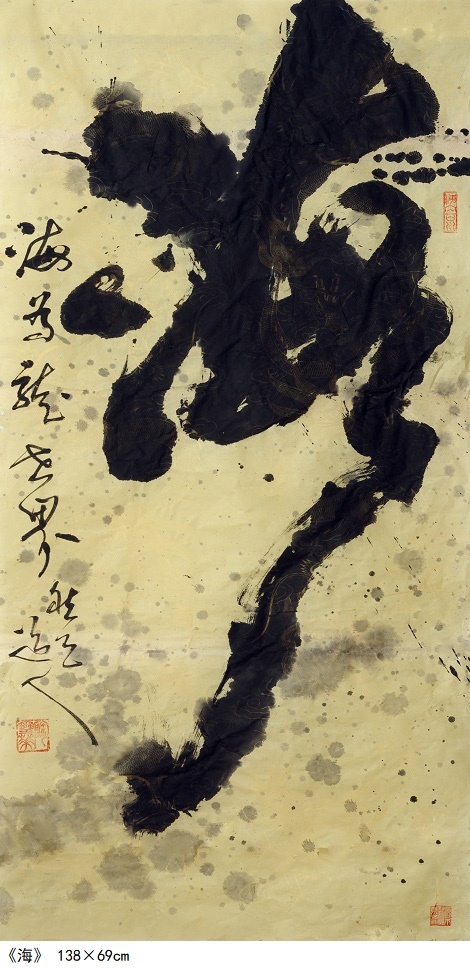 海
海为龙世界
道人
《海》 138×69cm